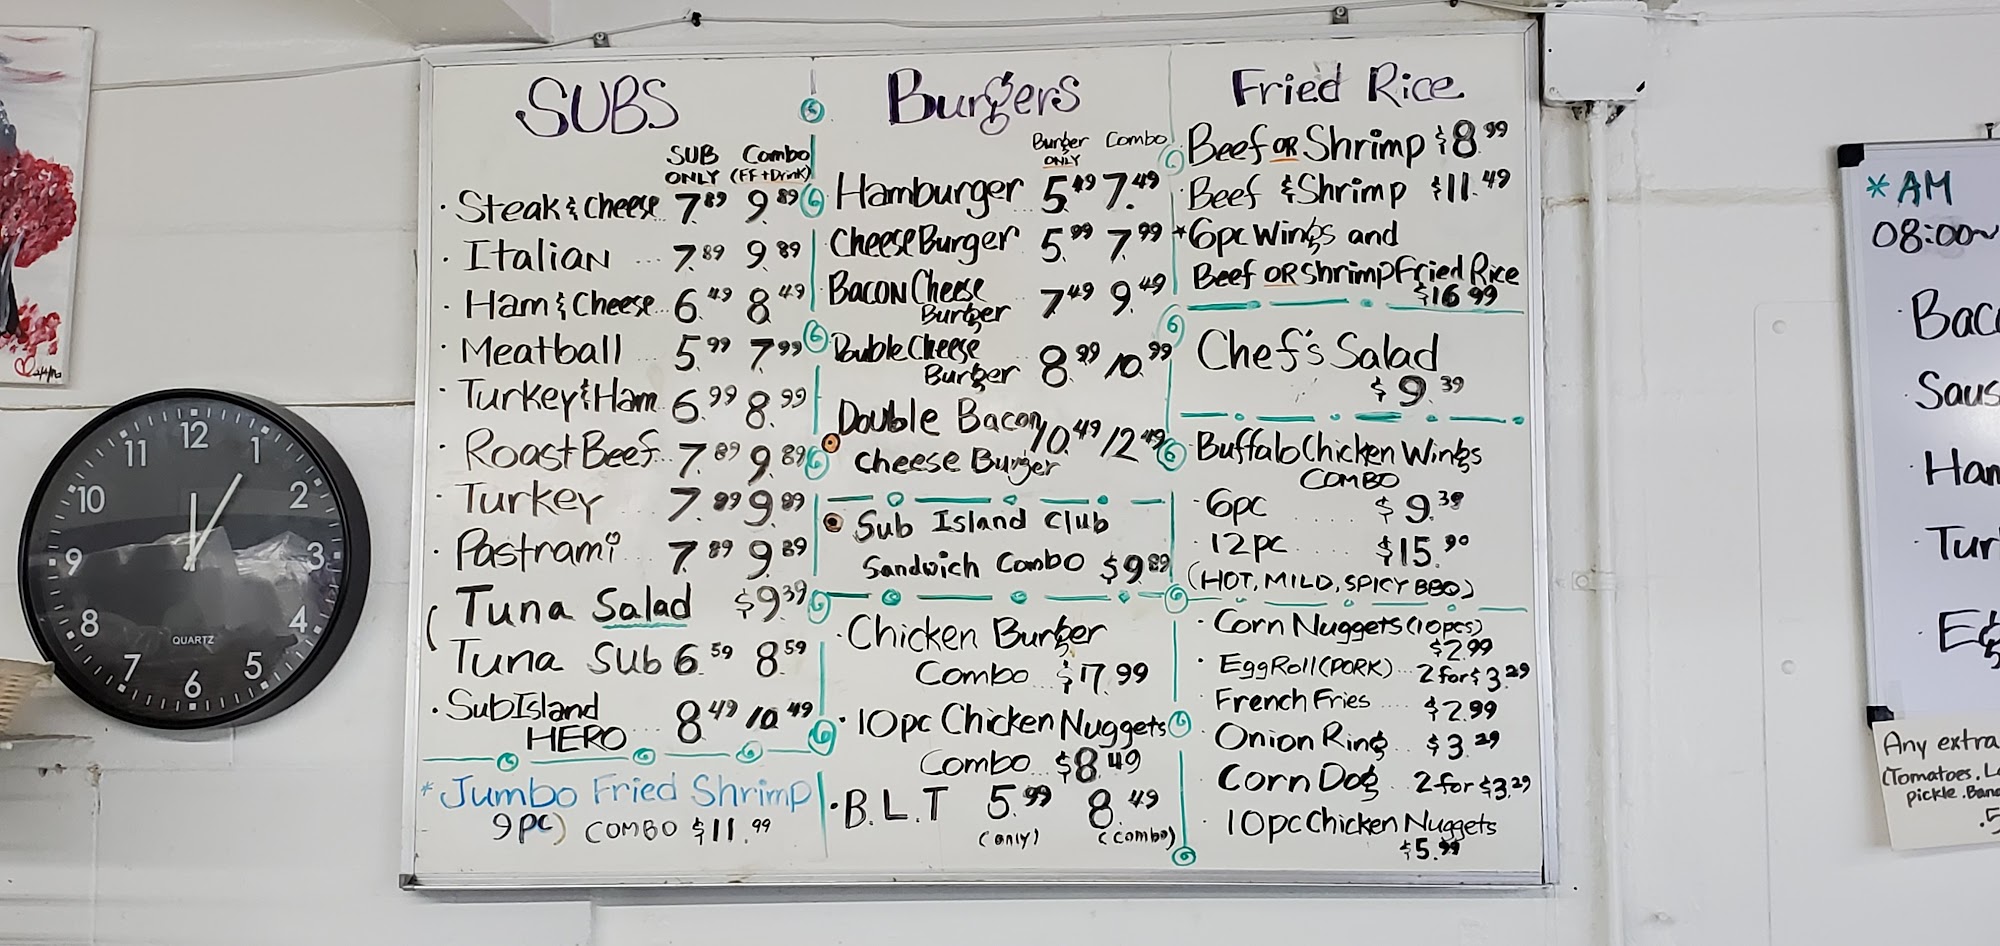 SUBS
SUB ONLY Combo (FF+Drink)
· Steak & Cheese 7.89 9.89
· Italian ... 7.89 9.89
· Ham & Cheese... 6.49 8.49
· Meatball ... 5.99 7.99
· Turkey & Ham 6.99 8.99
· Roast Beef... 7.89 9.89
· Turkey 7.89 9.89
· Pastrami ... 7.89 9.89
Tuna Salad $9.39
Tuna Sub 6.59 8.59
· Sub Island
HERO ... 8.49 10.49
* Jumbo Fried Shrimp
9pc) COMBO $11.99
Burgers
Burger ONLY Combo
Hamburger ... 5.49 7.49
Cheese Burger 5.99 7.99
Bacon Cheese
Burger 7.49 9.49
Double Cheese
Burger 8.99 10.99
Double Bacon 10.49/12.49
Cheese Burger
Sub Island Club
Sandwich Combo $9.89
· Chicken Burger
Combo ... $7.99
· 10pc Chicken Nuggets
Combo ... $8.49
· B.L.T 5.99 8.49
(only) (combo)
Fried Rice
Beef OR Shrimp $8.99
· Beef & Shrimp $11.49
* 6pc Wings and
Beef OR Shrimp Fried Rice
$16.99
Chef's Salad
$9.39
Buffalo Chicken Wings
COMBO
· 6pc ..... $9.39
· 12pc ..... $15.90
(HOT, MILD, SPICY BBQ)
· Corn Nuggets (10pcs)
$2.99
· Egg Roll (PORK) ... 2 for $3.29
· French Fries .... $2.99
· Onion Ring ... $3.29
· Corn Dog .. 2 for $3.29
· 10pc Chicken Nuggets
$5.99
12
1
2
3
4
5
6
7
8
9
10
11
QUARTZ
* AM
08:00~
Any extra
(Tomatoes.
pickle.